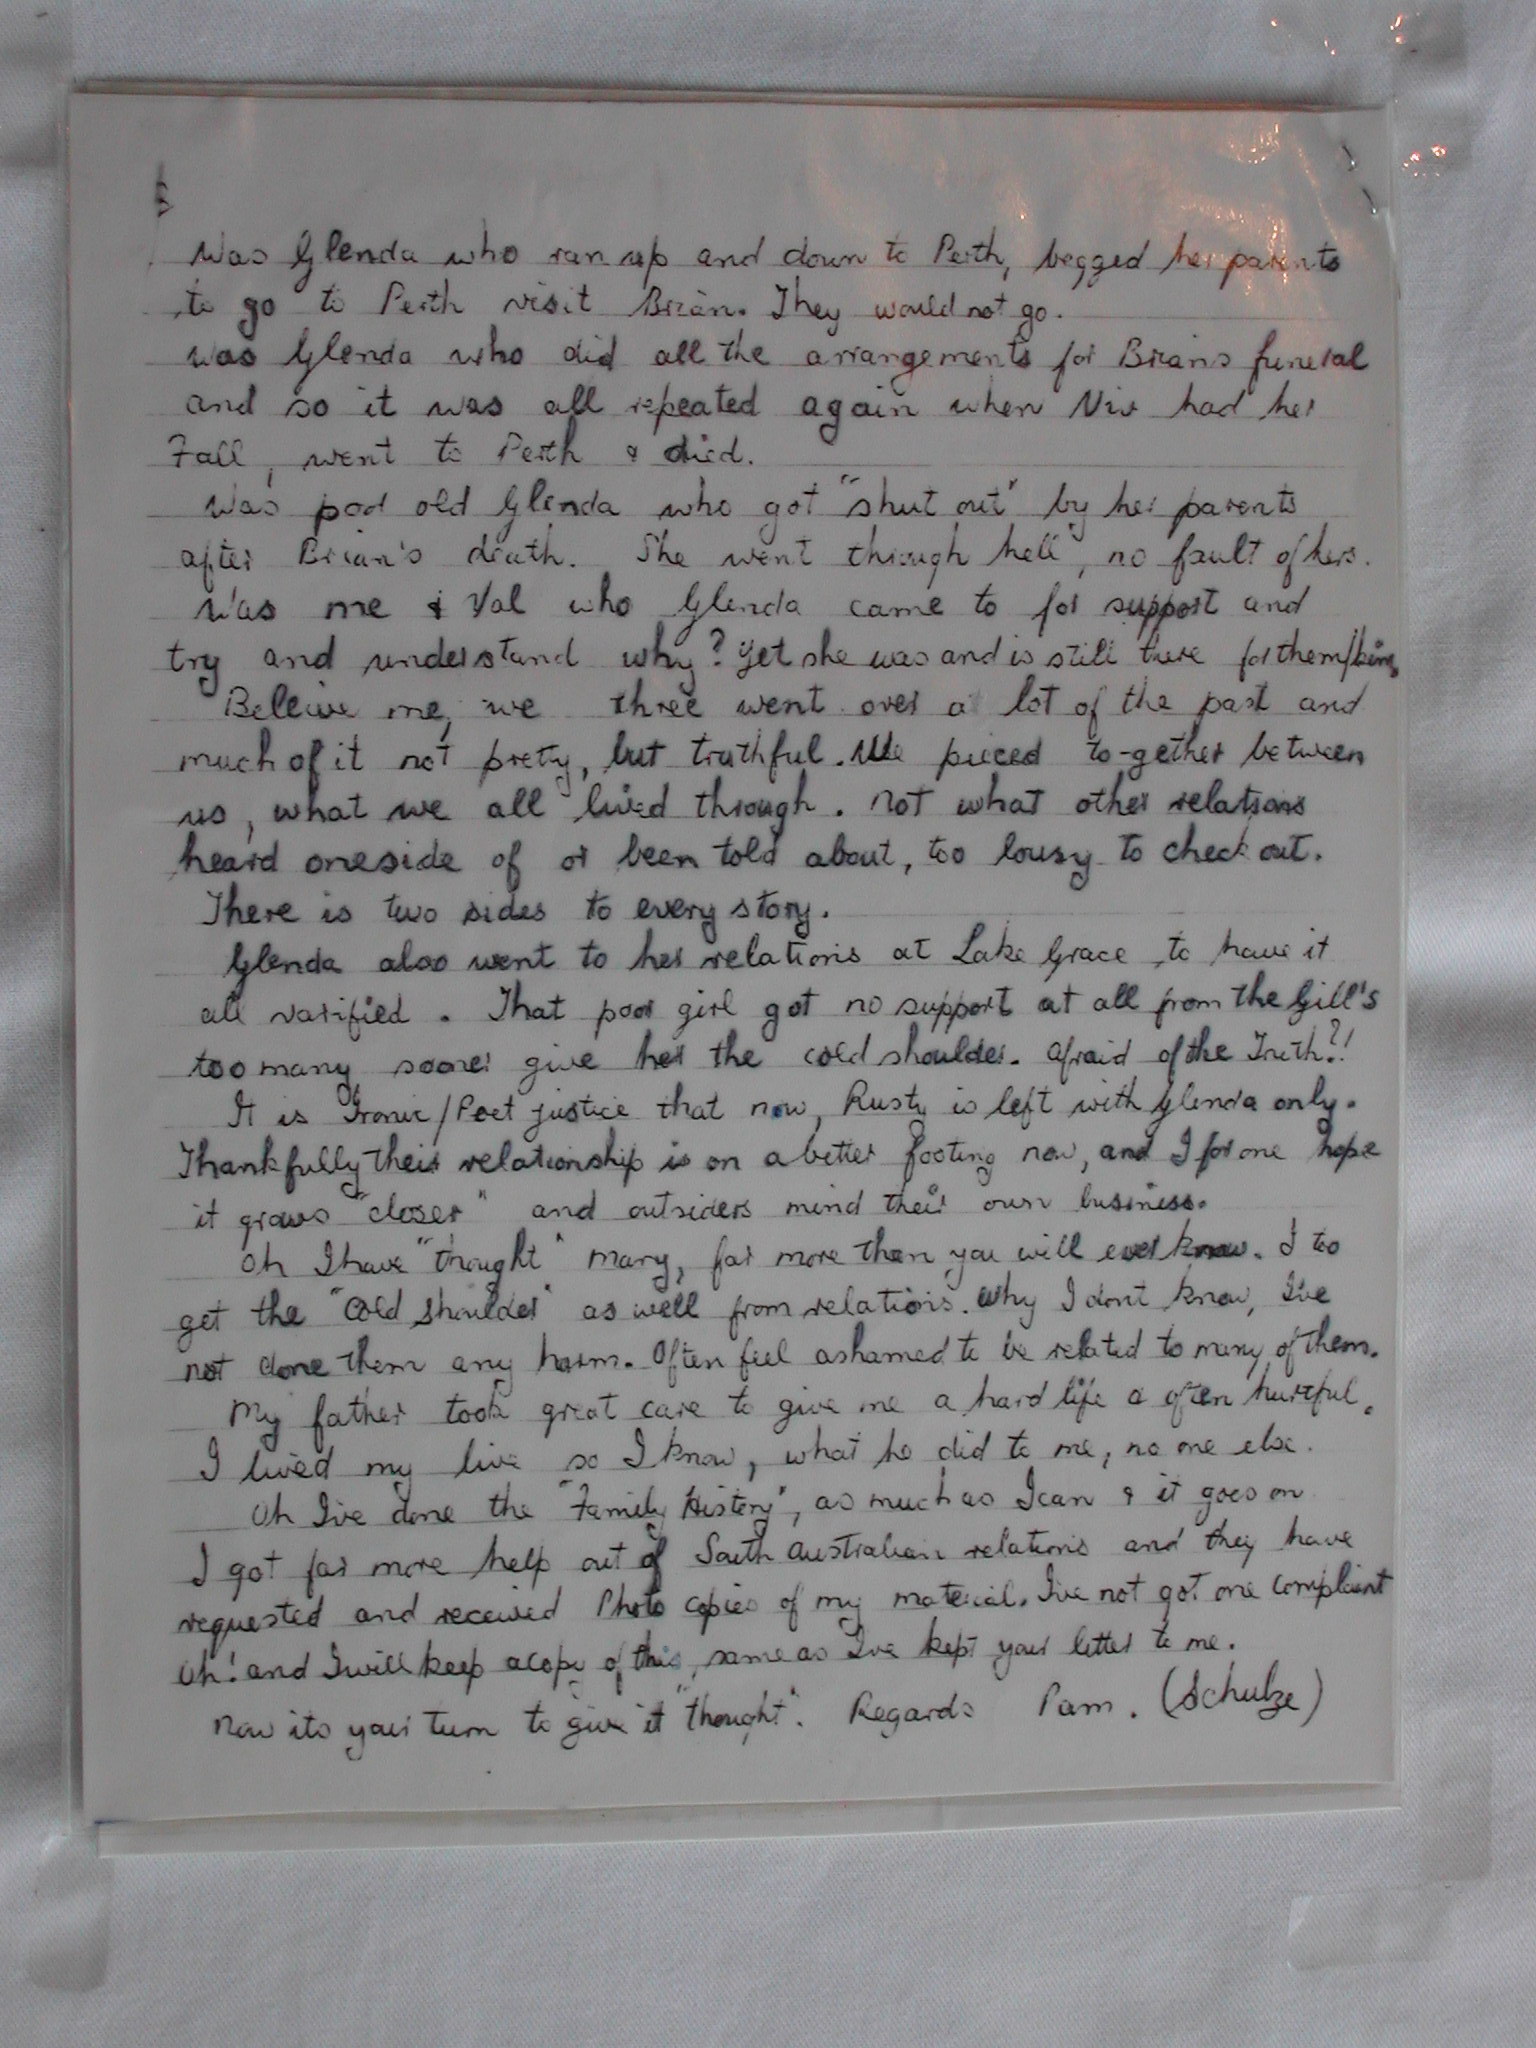 Was Glenda who ran up and down to Perth, begged her parents
to go to Perth visit Brian. They would not go.
Was Glenda who did all the arrangements for Brians funeral
and so it was all repeated again when Viv had her
Fall, went to Perth & died.
Was poor old Glenda who got "shut out" by her parents
after Brian's death. She went through hell, no fault of hers.
Was me & Val who Glenda came to for support and
try and understand why? Yet she was and is still there for them/him.
Believe me, we three went over a lot of the past and
much of it not pretty, but truthful. We pieced to-gether between
us, what we all lived through. Not what other relations
heard oneside of or been told about, too lousy to check out.
There is two sides to every story.
Glenda also went to her relations at Lake Grace to have it
all varified. That poor girl got no support at all from the Gill's
too many sooner give her the cold shoulder. Afraid of the Truth?!
It is Ironic/Poet justice that now, Rusty is left with Glenda only.
Thankfully their relationship is on a better footing now, and I for one hope
it grows "closer" and outsiders mind their own business.
Oh I have "thought" Mary, far more than you will ever know. I too
get the "Cold Shoulder" as well from relations. Why I dont know, I've
not done them any harm. Often feel ashamed to be related to many of them.
My father took great care to give me a hard life & often hurtful.
I lived my live so I know, what he did to me, no one else.
Oh I've done the "Family History", as much as I can & it goes on
I got far more help out of South Australian relations and they have
requested and received Photo copies of my material. I've not got one complaint
Oh! and I will keep a copy of this, same as I've kept your letter to me.
Now its your turn to give it "thought". Regards Pam. (Schulze)